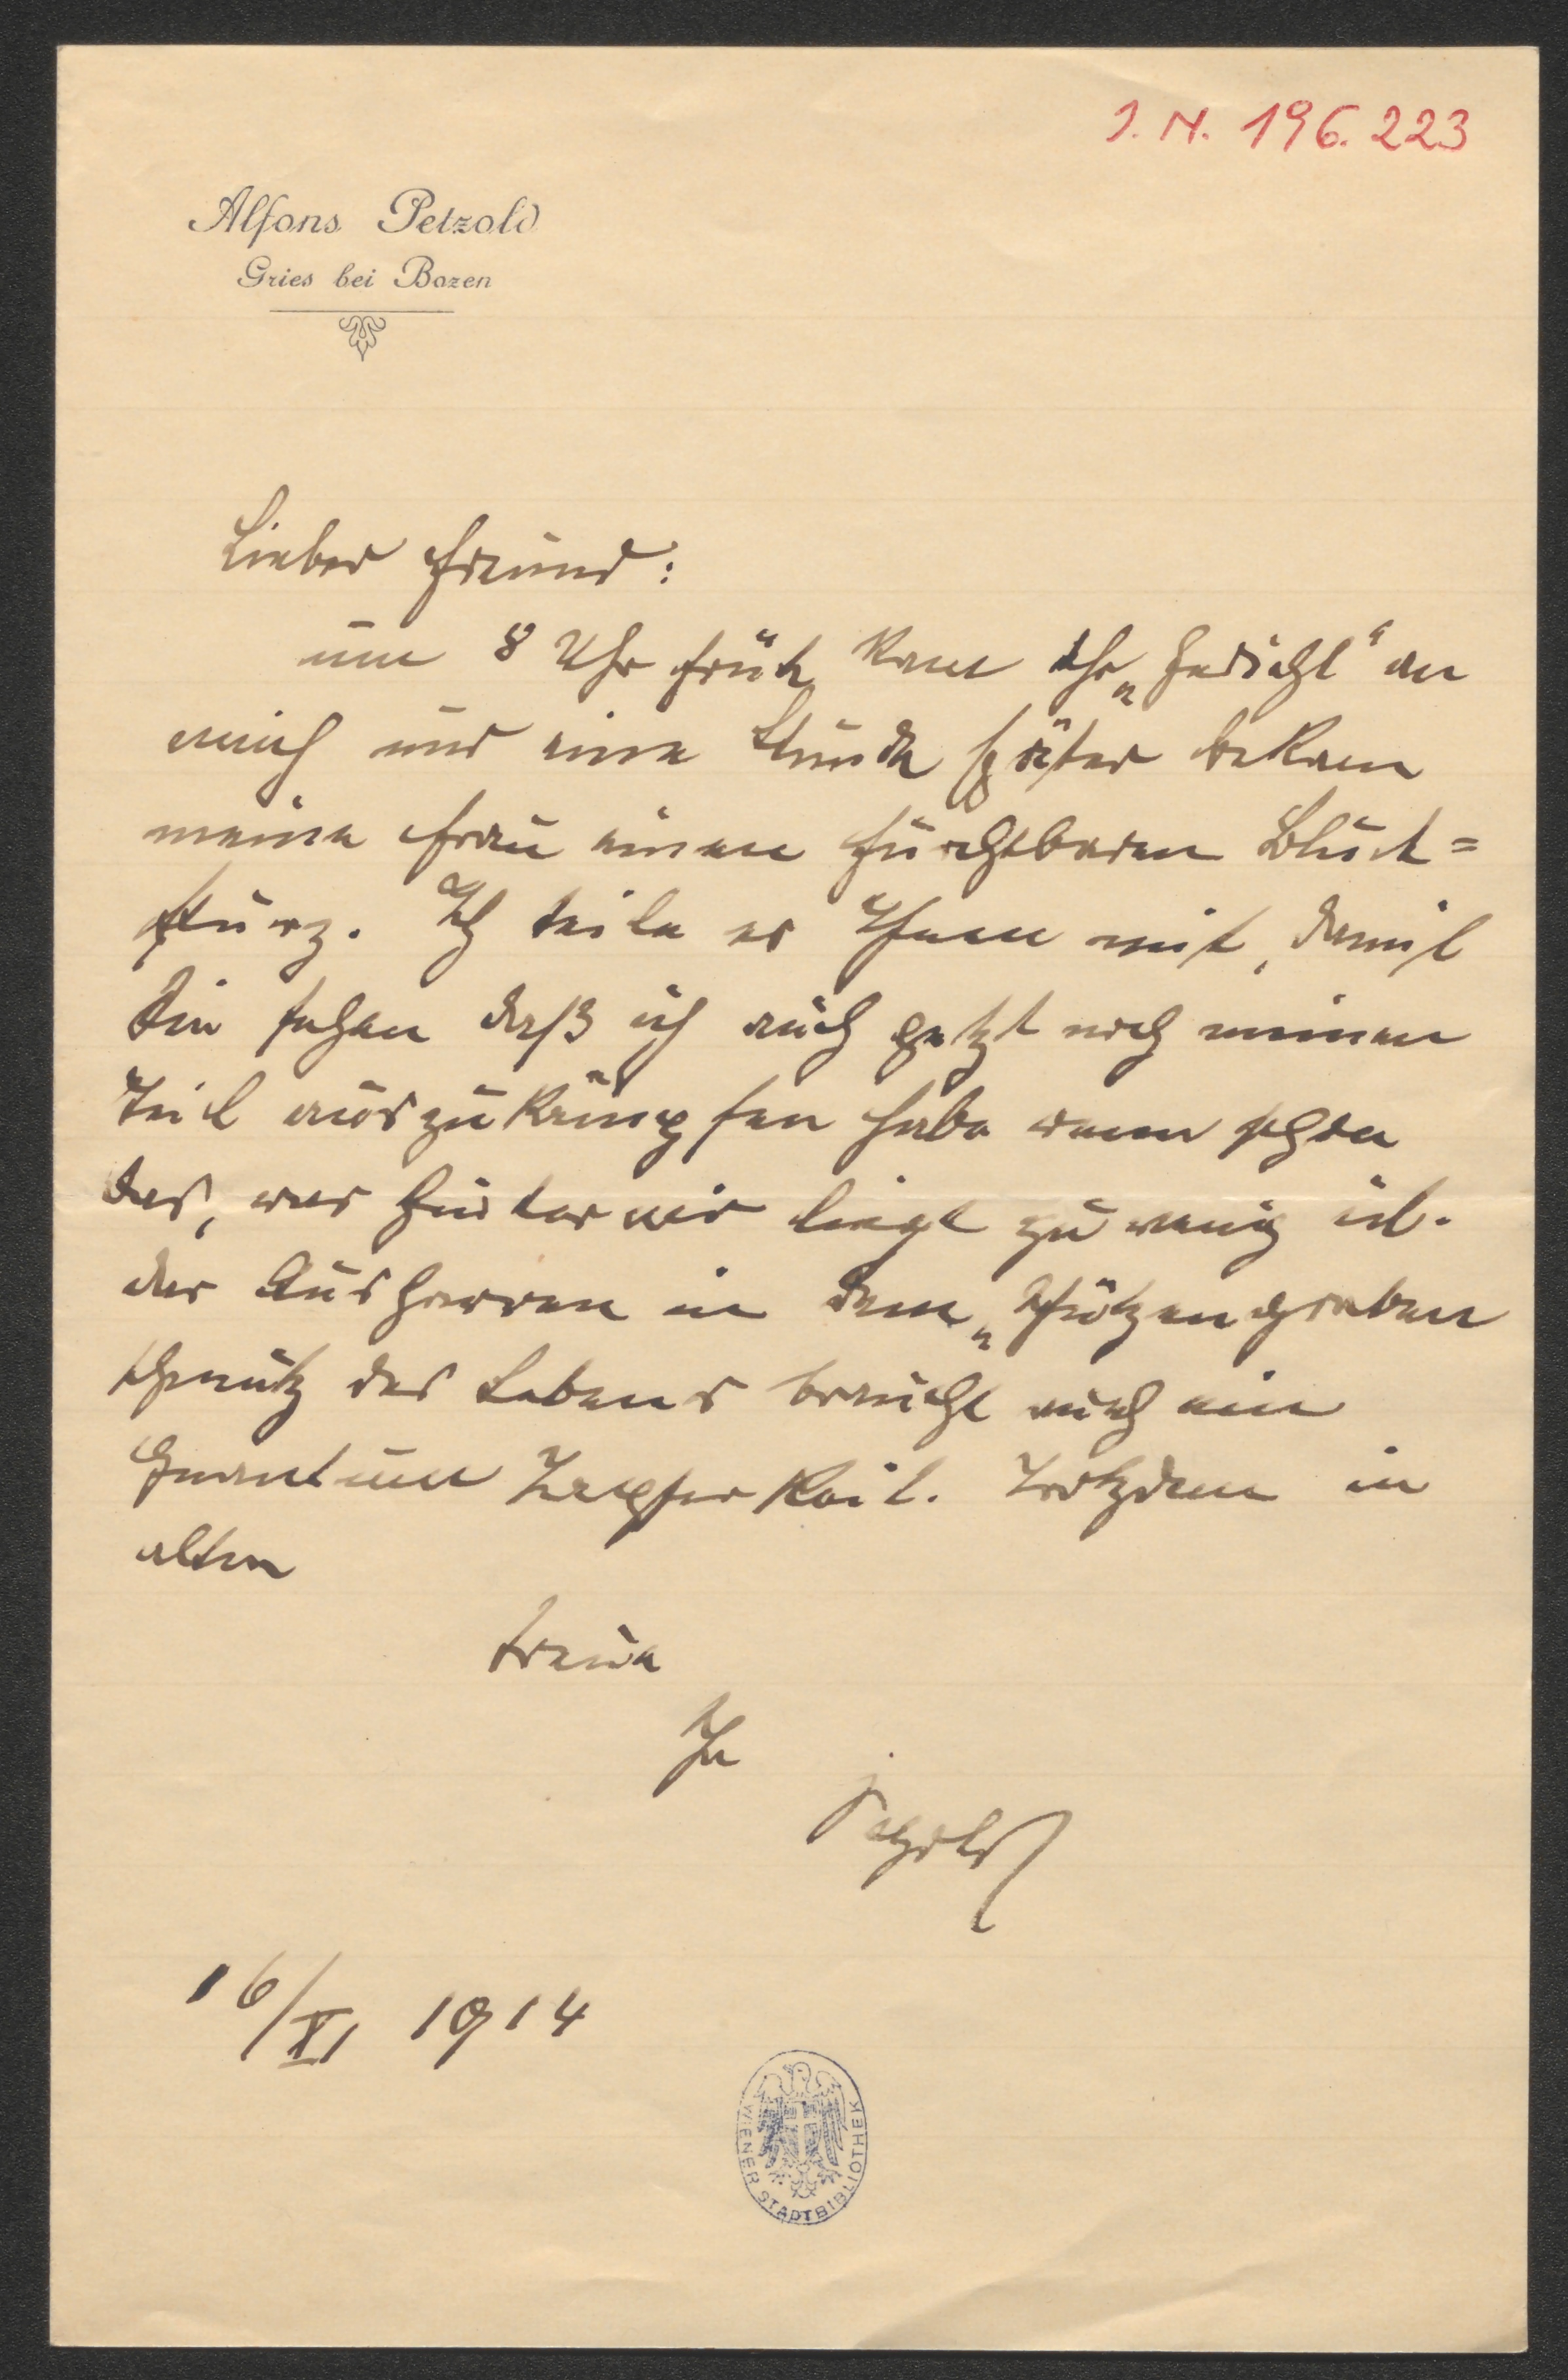 I.N. 196.223
Alfons Petzold
Gries bei Bozen
Lieber Freund:
um 8 Uhr früh kam Ihr „Gedicht“ an
mich und eine Stunde später bekam
meine Frau einen furchtbaren Blut=
sturz. Ich teile es Ihnen mit, damit
Sie sehen daß ich auch jetzt noch meinen
Teil auszukämpfen habe wenn schon
das, was hinter mir liegt zu wenig ist.
das Ausharren in dem „Schützengraben
schmutz des Lebens braucht auch ein
Quantum Tapferkeit. Trotzdem in
alter
Treue
Ihr
Petzold
16/XI 1914
WIENER STADTBIBLIOTHEK